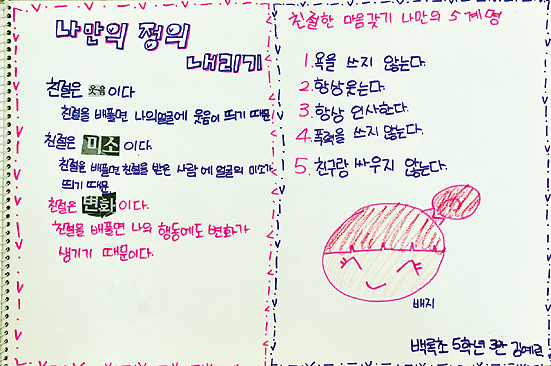 나만의 정의
내리기
친절은 웃음이다
친절을 베풀면 나의얼굴에 웃음이 띄기 때문
친절은 미소이다.
친절을 베풀면 친절을 받은 사람에 얼굴의 미소가
띄기 때문
친절은 변화이다.
친절을 베풀면 나의 행동에도 변화가
생기기 때문이다.
친절한 마음갖기 나만의 5계명
1. 욕을 쓰지 않는다.
2. 항상웃는다.
3. 항상 인사한다.
4. 폭력을 쓰지 않는다.
5. 친구랑 싸우지 않는다.
배지
백록초 5학년 3반